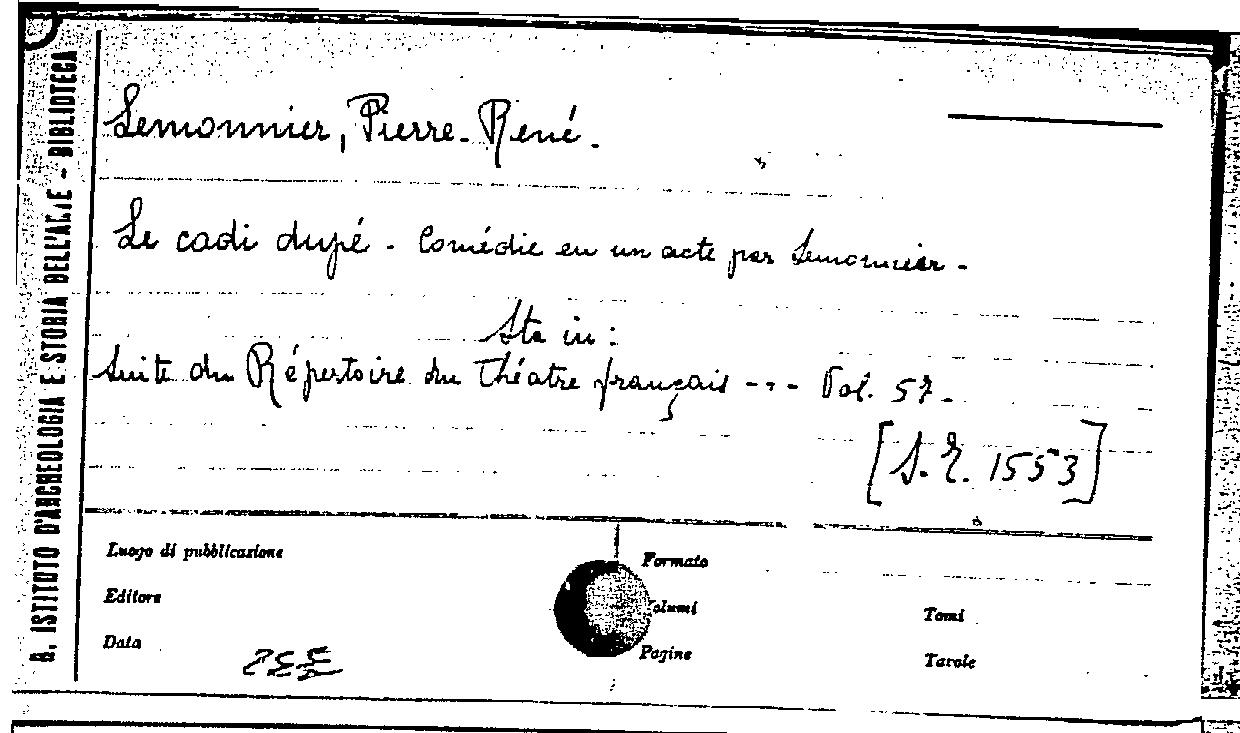 R. ISTITUTO D'ARCHEOLOGIA E STORIA DELL'ARTE - BIBLIOTECA
Lemonnier, Pierre-René.
Le cadi dupé - Comédie en un acte par Lemonnier -
Sta in:
Suite du Répertoire du Théatre français --- Vol. 57.
[S.R. 1553]
Luogo di pubblicazione
Formato
Editore
Volumi
Tomi
Data
Pagine
Tavole